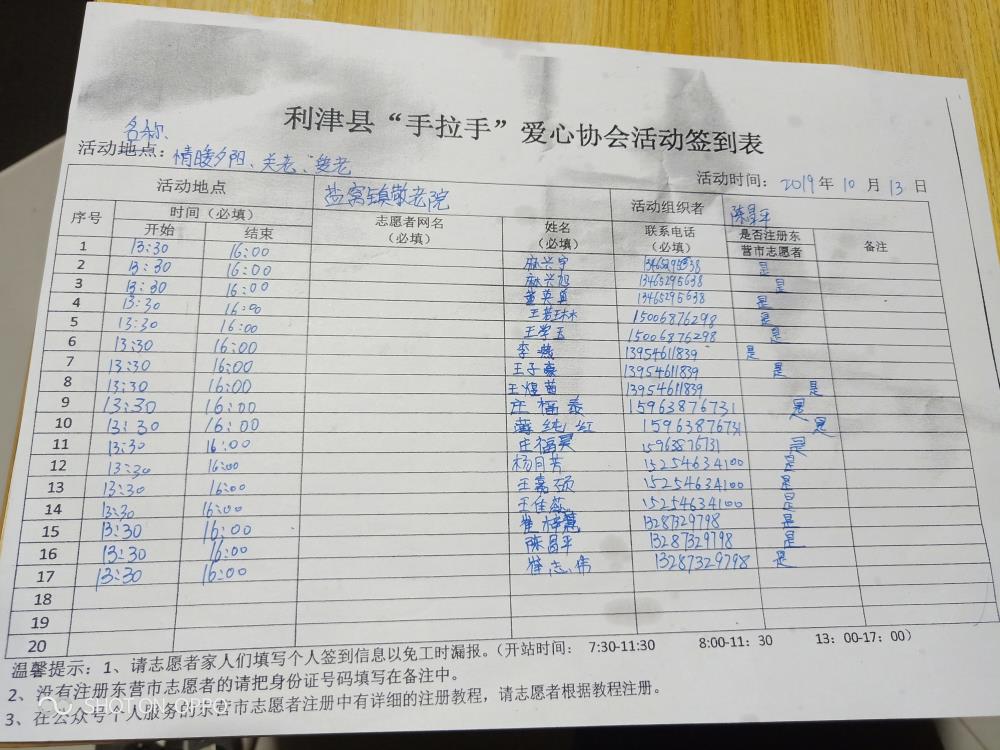 利津县“手拉手”爱心协会活动签到表
名称
活动地点：情暖夕阳、关老、爱老
活动时间：2019年10月13日
活动地点 盐窝镇敬老院 活动组织者 陈昌平
序号 时间（必填） 志愿者网名（必填） 姓名（必填） 联系电话（必填） 是否注册东营市志愿者 备注
开始 结束
1 13:30 16:00 麻兴宇 13465295638 是
2 13:30 16:00 麻兴旭 13465295638 是
3 13:30 16:00 13465295638 是
4 13:30 16:00 王若琳 15006876298 是
5 13:30 16:00 王学玉 15006876298 是
6 13:30 16:00 李 13954611839 是
7 13:30 16:00 王子豪 13954611839 是
8 13:30 16:00 王煜茴 13954611839 是
9 13:30 16:00 庄福泰 15963876731 是
10 13:30 16:00 纯红 15963876731 是
11 13:30 16:00 庄福昊 15963876731 是
12 13:30 16:00 杨月芳 15254634100 是
13 13:30 16:00 王嘉硕 15254634100 是
14 13:30 16:00 王佳 15254634100 是
15 13:30 16:00 崔梓慧 13287329798 是
16 13:30 16:00 陈昌平 13287329798 是
17 13:30 16:00 崔志伟 13287329798 是
18
19
20
温馨提示：1、请志愿者家人们填写个人签到信息以免工时漏报。（开站时间： 7:30-11:30 8:00-11：30 13：00-17：00）
2、没有注册东营市志愿者的请把身份证号码填写在备注中。
3、在公众号个人服务的东营市志愿者注册中有详细的注册教程，请志愿者根据教程注册。
SHOT ON OPPO